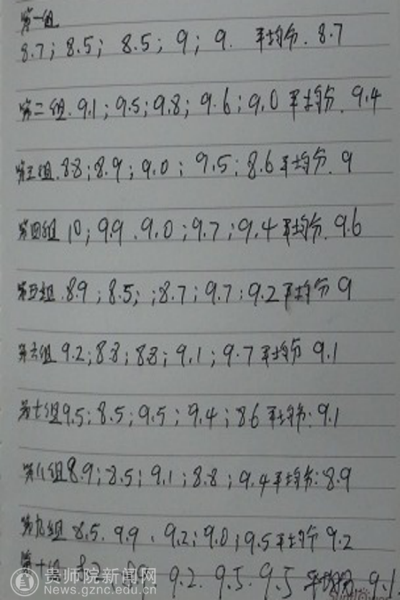 第一组
8.7; 8.5; 8.5; 9; 9. 平均分. 8.7
第二组. 9.1; 9.5; 9.8; 9.6; 9.0 平均分. 9.4
第三组. 8.8; 8.9; 9.0; 9.5; 8.6 平均分. 9
第四组 10; 9.9. 9.0; 9.7; 9.4 平均分. 9.6
第五组. 8.9; 8.5; ;8.7; 9.7; 9.2 平均分 9
第六组 9.2; 8.8; 8.8; 9.1; 9.7 平均分 9.1
第七组 9.5; 8.5; 9.5; 9.4; 8.6 平均分: 9.1
第八组 8.9; 8.5; 9.1; 8.8; 9.4 平均分: 8.9
第九组 8.5. 9.9. 9.2; 9.0; 9.5 平均分 9.2
第十组 9.2. 9.5. 9.5 平均分 9.1
贵师院新闻网
News.gznc.edu.cn